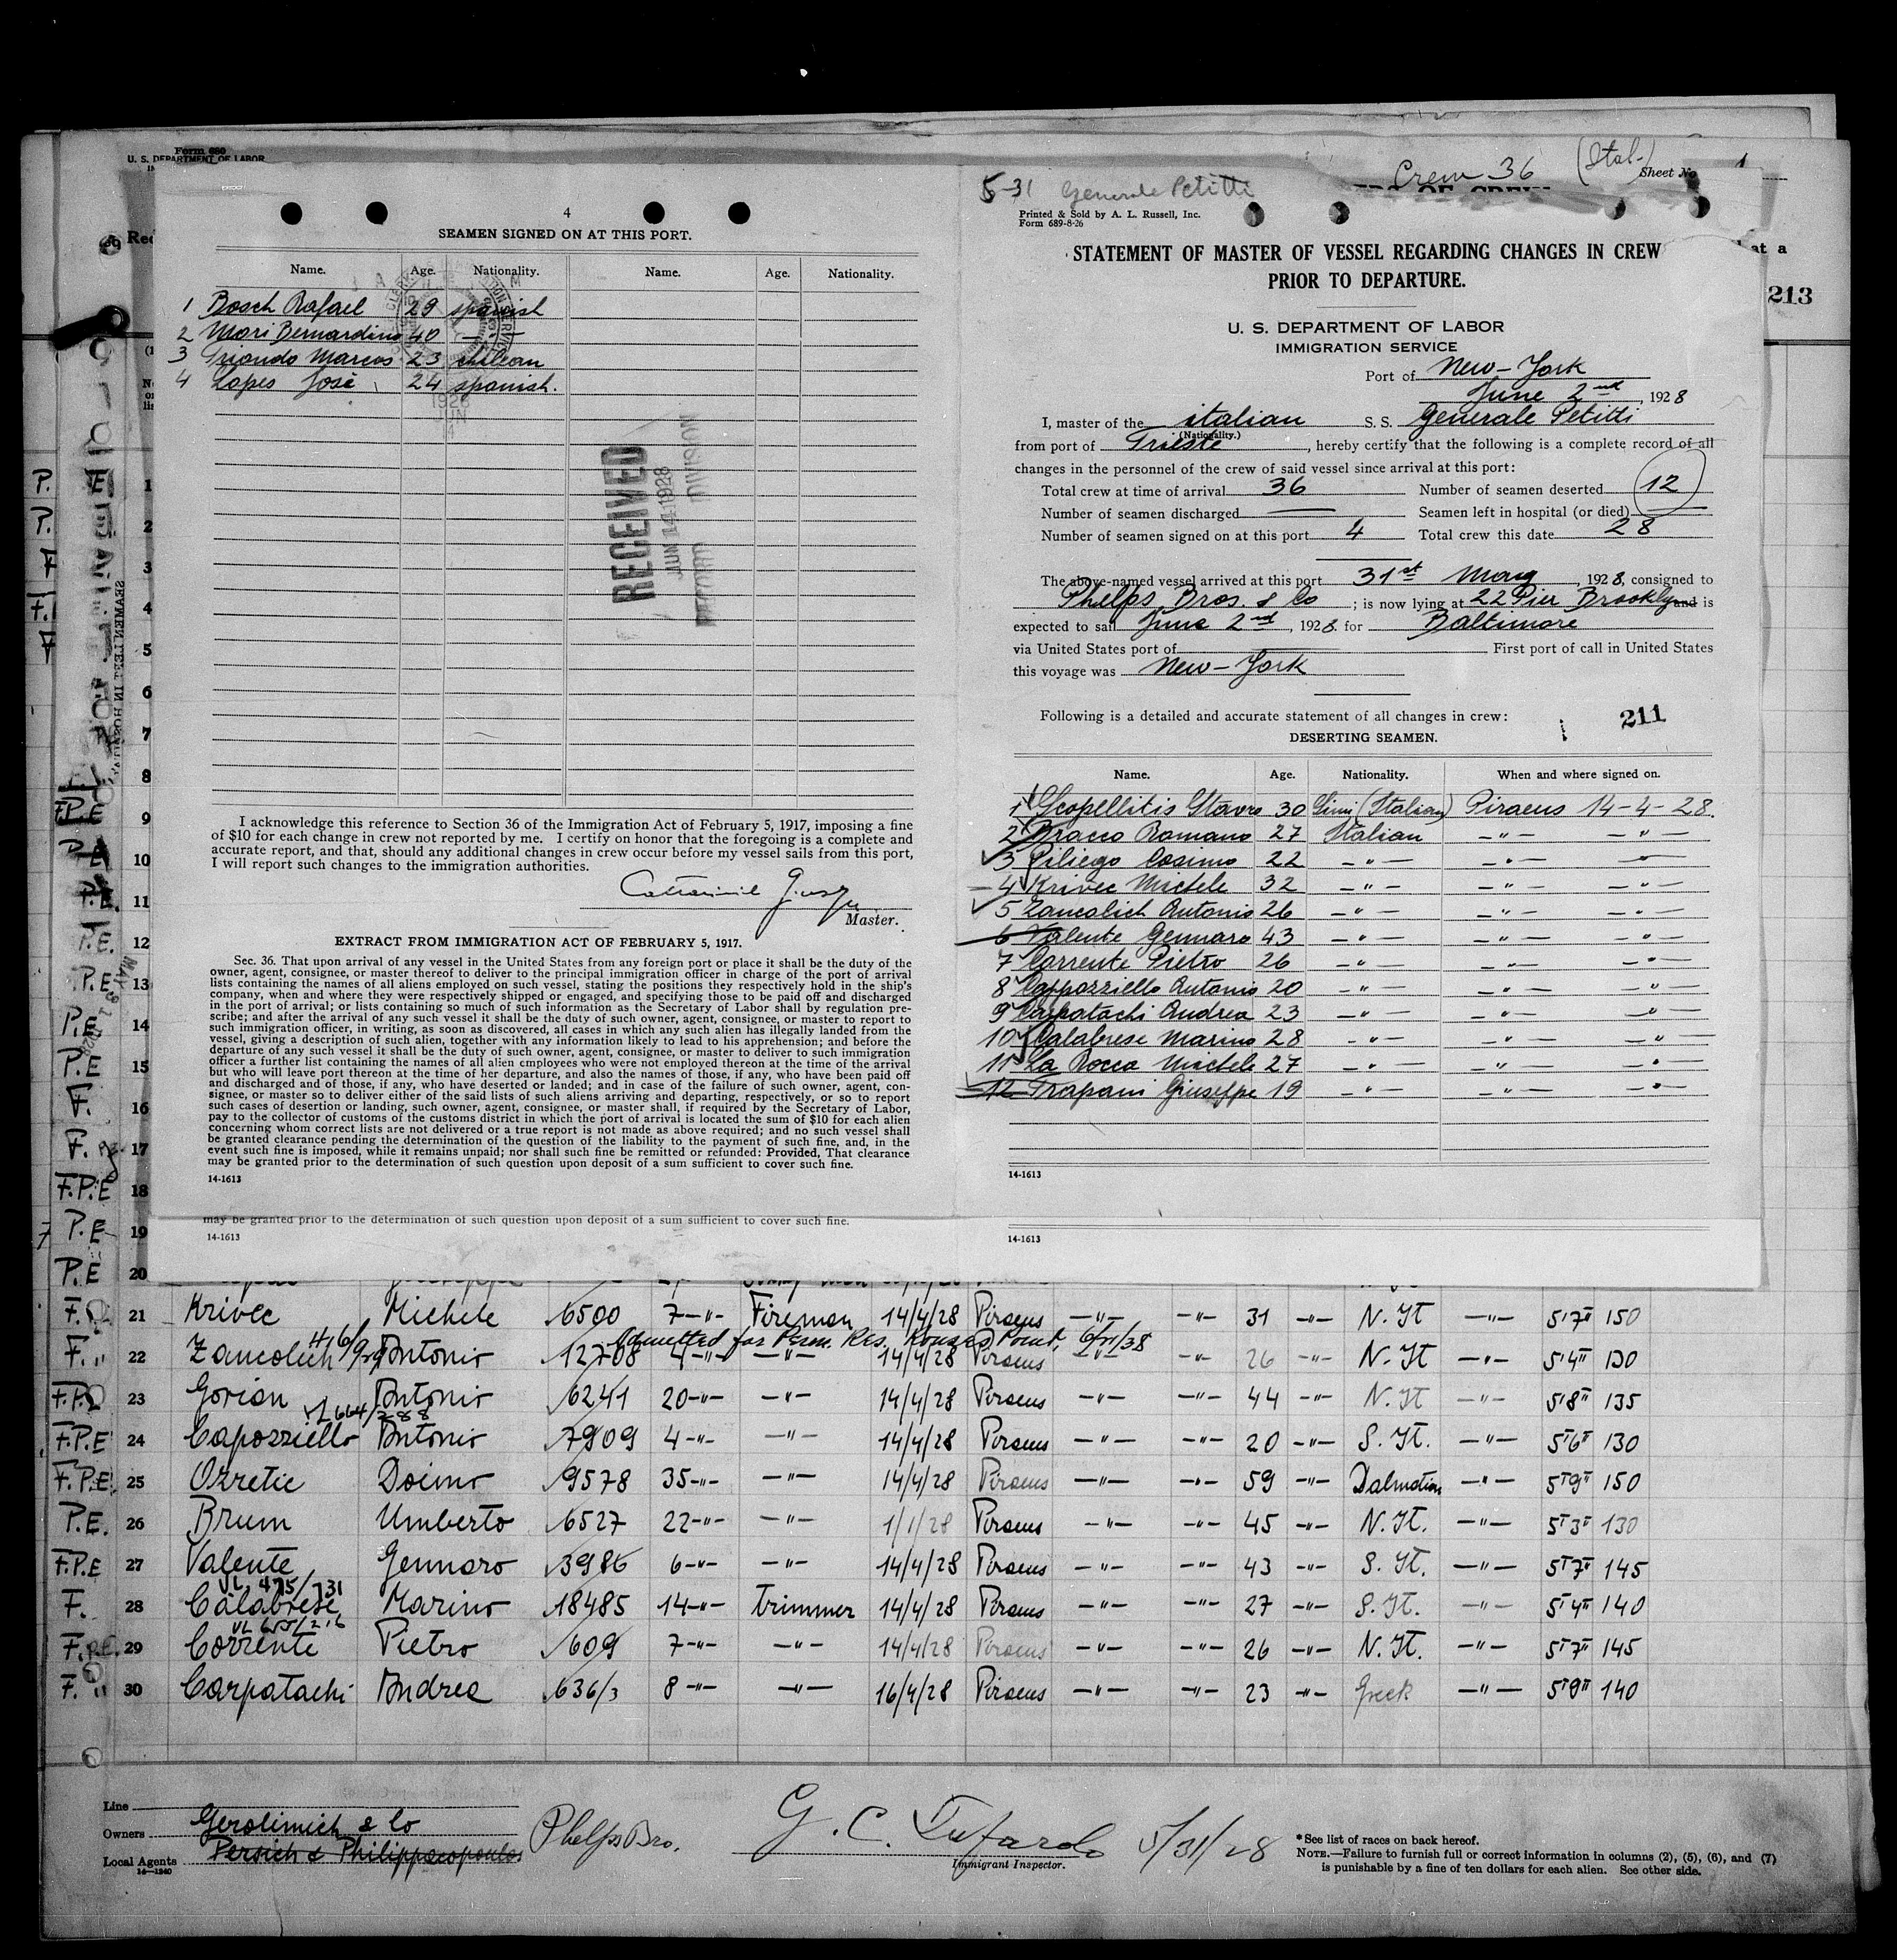 Form 680
U. S. DEPARTMENT OF LABOR
Crew 36 (Ital-)
Sheet No 1
213
4
SEAMEN SIGNED ON AT THIS PORT.
Name. Age. Nationality. Name. Age. Nationality.
1 Bosch Rafael 29 spanish
2 Mori Bernardino 40 —"—
3 Triondo Marcos 23 chilean
4 Lopes José 24 spanish.
1928
JUN
RECEIVED
JUN 14 1928
RECORD DIVISION
I acknowledge this reference to Section 36 of the Immigration Act of February 5, 1917, imposing a fine
of $10 for each change in crew not reported by me. I certify on honor that the foregoing is a complete and
accurate report, and that, should any additional changes in crew occur before my vessel sails from this port,
I will report such changes to the immigration authorities.
Master.
EXTRACT FROM IMMIGRATION ACT OF FEBRUARY 5, 1917.
Sec. 36. That upon arrival of any vessel in the United States from any foreign port or place it shall be the duty of the
owner, agent, consignee, or master thereof to deliver to the principal immigration officer in charge of the port of arrival
lists containing the names of all aliens employed on such vessel, stating the positions they respectively hold in the ship's
company, when and where they were respectively shipped or engaged, and specifying those to be paid off and discharged
in the port of arrival; or lists containing so much of such information as the Secretary of Labor shall by regulation pre-
scribe; and after the arrival of any such vessel it shall be the duty of such owner, agent, consignee, or master to report to
such immigration officer, in writing, as soon as discovered, all cases in which any such alien has illegally landed from the
vessel, giving a description of such alien, together with any information likely to lead to his apprehension; and before the
departure of any such vessel it shall be the duty of such owner, agent, consignee, or master to deliver to such immigration
officer a further list containing the names of all alien employees who were not employed thereon at the time of the arrival
but who will leave port thereon at the time of her departure, and also the names of those, if any, who have been paid off
and discharged and of those, if any, who have deserted or landed; and in case of the failure of such owner, agent, con-
signee, or master so to deliver either of the said lists of such aliens arriving and departing, respectively, or so to report
such cases of desertion or landing, such owner, agent, consignee, or master shall, if required by the Secretary of Labor,
pay to the collector of customs of the customs district in which the port of arrival is located the sum of $10 for each alien
concerning whom correct lists are not delivered or a true report is not made as above required; and no such vessel shall
be granted clearance pending the determination of the question of the liability to the payment of such fine, and, in the
event such fine is imposed, while it remains unpaid; nor shall such fine be remitted or refunded: Provided, That clearance
may be granted prior to the determination of such question upon deposit of a sum sufficient to cover such fine.
14-1613
may be granted prior to the determination of such question upon deposit of a sum sufficient to cover such fine.
14-1613
5-31 Generale Petitti
Printed & Sold by A. L. Russell, Inc.
Form 689-8-26
STATEMENT OF MASTER OF VESSEL REGARDING CHANGES IN CREW
PRIOR TO DEPARTURE.
U. S. DEPARTMENT OF LABOR
IMMIGRATION SERVICE
Port of New-York
June 2nd, 1928
I, master of the italian S. S. Generale Petitti
(Nationality.)
from port of Trieste, hereby certify that the following is a complete record of all
changes in the personnel of the crew of said vessel since arrival at this port:
Total crew at time of arrival 36 Number of seamen deserted 12
Number of seamen discharged — Seamen left in hospital (or died) —
Number of seamen signed on at this port 4 Total crew this date 28
The above-named vessel arrived at this port 31st May, 1928, consigned to
Phelps Bros. & Co; is now lying at 22 Pier Brooklyn and is
expected to sail June 2nd, 1928. for Baltimore
via United States port of — First port of call in United States
this voyage was New-York
Following is a detailed and accurate statement of all changes in crew:
211
DESERTING SEAMEN.
Name. Age. Nationality. When and where signed on.
1 Scopellitis Stavro 30 Simi (Italian) Piraeus 14-4-28.
2 Bracco Romano 27 Italian —"— —"—
3 Piliego Cosimo 22 —"— —"— —"—
4 Krivec Michele 32 —"— —"— —"—
5 Zancolich Antonio 26 —"— —"— —"—
6 Valente Gennaro 43 —"— —"— —"—
7 Corrente Pietro 26 —"— —"— —"—
8 Cappozziello Antonio 20 —"— —"— —"—
9 Carpatachi Andrea 23 —"— —"— —"—
10 Calabrese Marino 28 —"— —"— —"
11 La Rocca Michele 27 —"— —"— —"—
12 Trapani Giuseppe 19 —"— —"— —"—
14-1613
14-1613
P. E 1
P. 2
F 3
F. 4
F 5
6
7
8
F.P.E 9
P.E 10
P.E. 11
P.E. 12
P.E. 13
P.E 14
P.E 15
F. 16
F. 17
F.P.E 18
P.E 19
P.E 20
SEAMEN LEFT IN HOSPITAL
F. 21 Krivec Michele 6500 7-"- Fireman 14/4/28 Piraeus —"— —"— 31 —"— N. It —"— 5'7" 150
Admitted for Perm. Res. Rouses Point, 6/21/38
F. " 22 Zancolich Antonio 12708 4-"- —"— 14/4/28 Piraeus —"— —"— 26 —"— N. It —"— 5'4" 130
F.P. 23 Gorian Antonio 6241 20-"- —"— 14/4/28 Piraeus —"— —"— 44 —"— N. It —"— 5'8" 135
VL 664/288
F.P.E 24 Capozziello Antonio 7909 4-"- —"— 14/4/28 Piraeus —"— —"— 20 —"— S. It. —"— 5'6" 130
F.P.E. 25 Orretic Doimo 9578 35-"- —"— 14/4/28 Piraeus —"— —"— 59 —"— Dalmation —"— 5'9" 150
P.E. 26 Brum Umberto 6527 22-"- —"— 1/1/28 Piraeus —"— —"— 45 —"— N. It. —"— 5'3" 130
F.P.E 27 Valente Gennaro 3986 6-"- —"— 14/4/28 Piraeus —"— —"— 43 —"— S. It. —"— 5'7" 145
VL 475/731
F. 28 Calabrese Marino 18485 14-"- trimmer 14/4/28 Piraeus —"— —"— 27 —"— S. It. —"— 5'4" 140
VL 655/216
F.P.E. 29 Corrente Pietro 609 7-"- —"— 14/4/28 Piraeus —"— —"— 26 —"— N. It. —"— 5'7" 145
F. " 30 Carpatachi Andrea 636/3 8-"- —"— 16/4/28 Piraeus —"— —"— 23 —"— Greek —"— 5'8" 140
Line
Owners Gerolimich & Co
Local Agents Persich & Philippacopoulos
14-1240
Phelps Bro.
G. C. Tufarolo 5/31/28
Immigrant Inspector.
*See list of races on back hereof.
NOTE.—Failure to furnish full or correct information in columns (2), (5), (6), and (7)
is punishable by a fine of ten dollars for each alien. See other side.